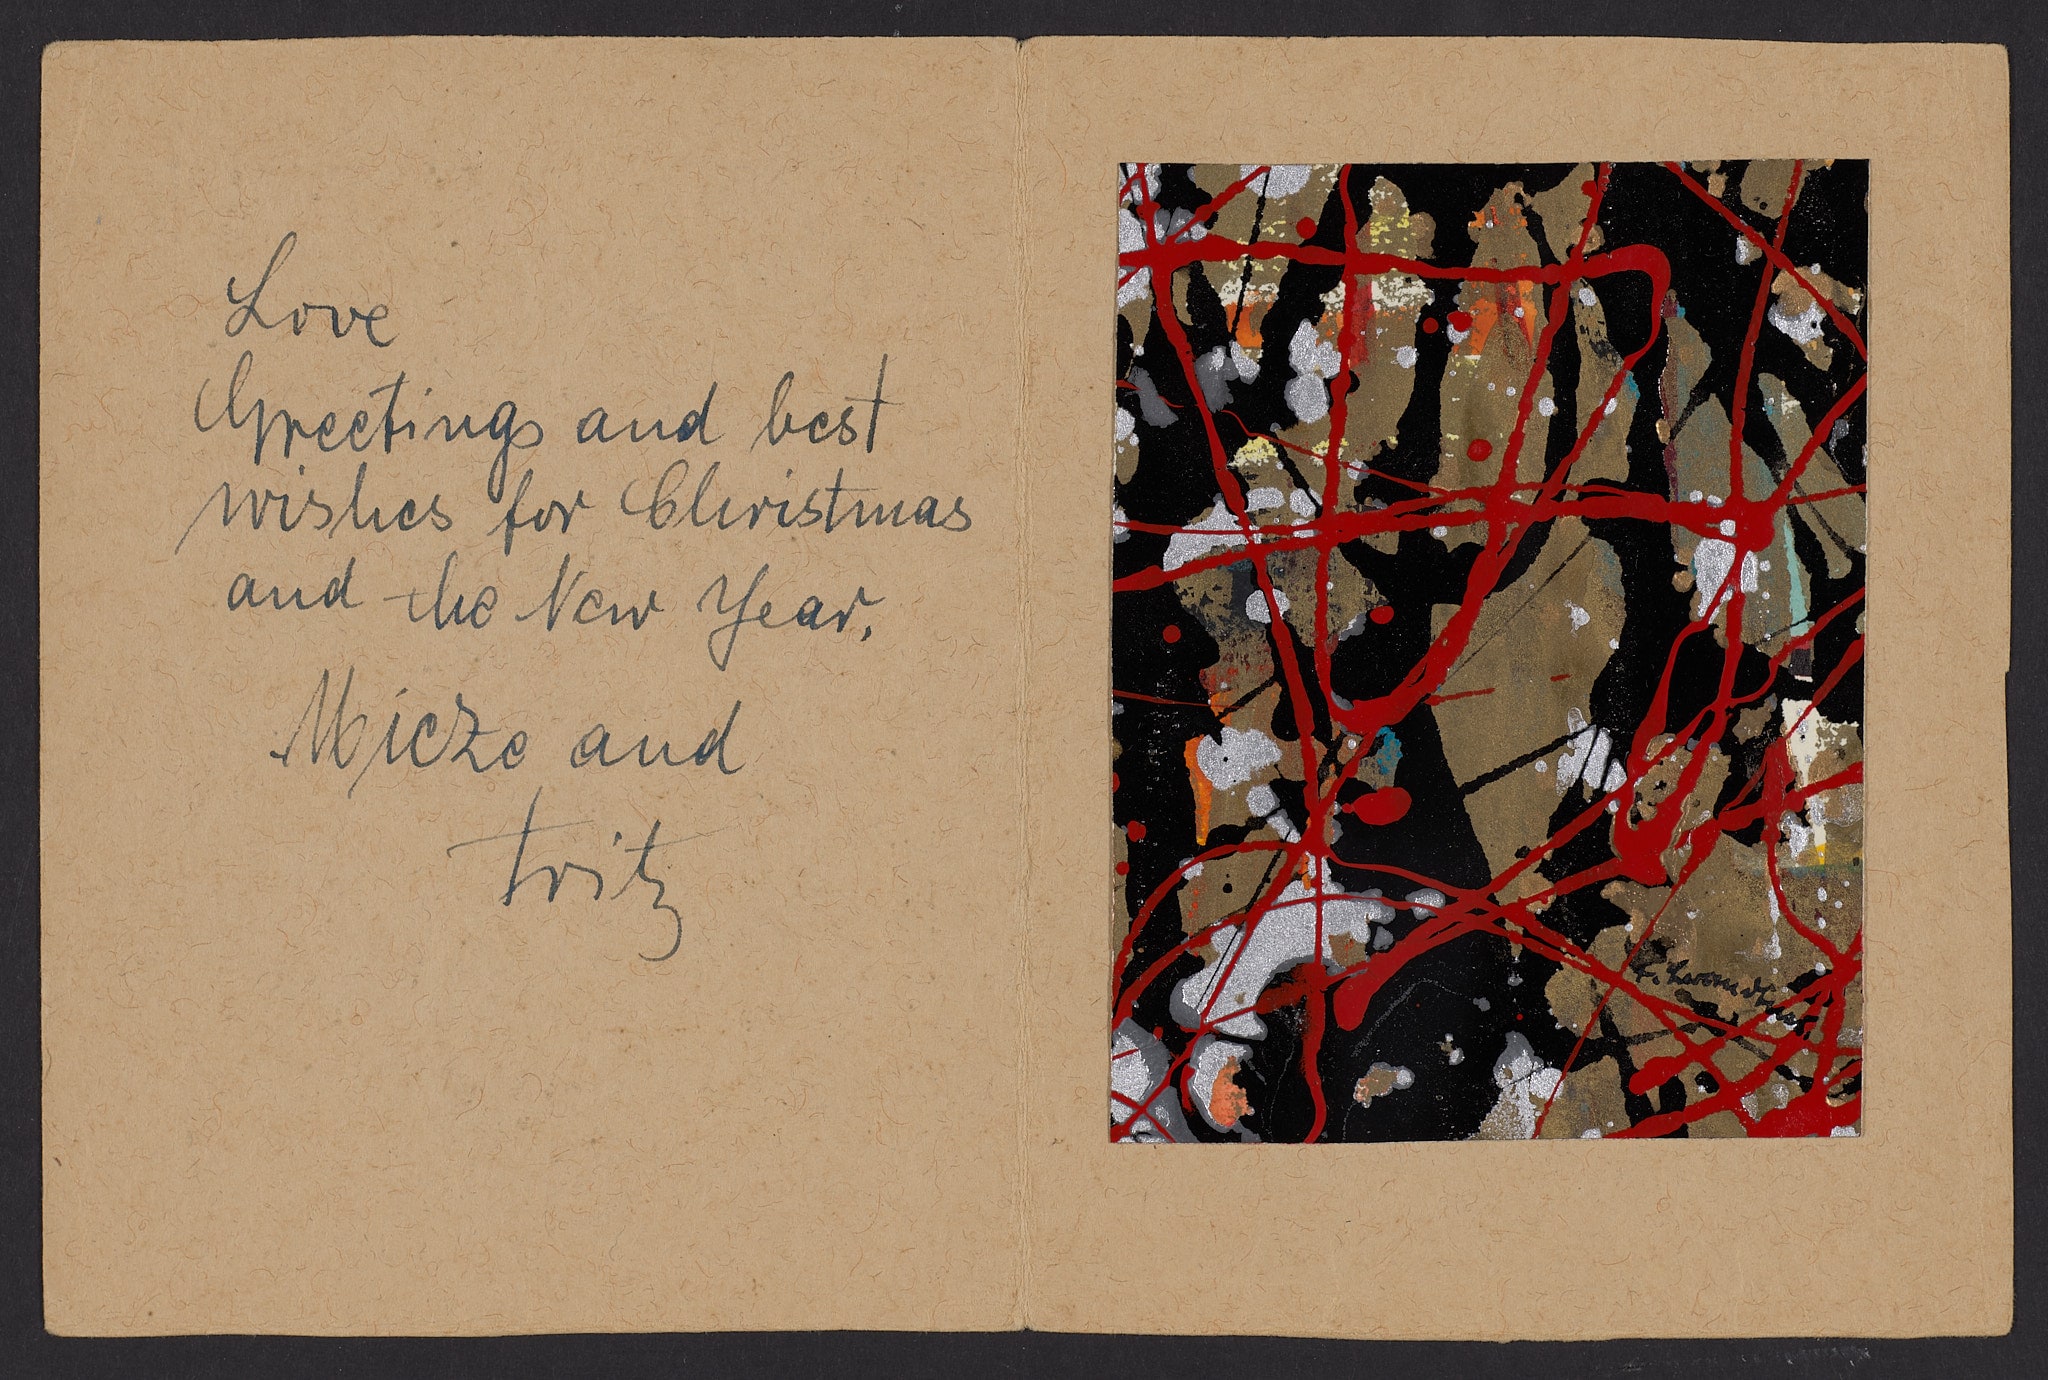 Love
Greetings and best
wishes for Christmas
and the New Year.
Micze and
Fritz